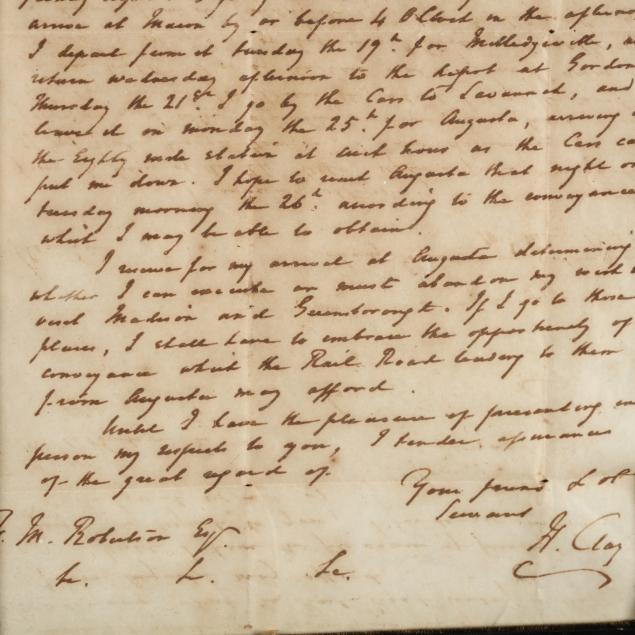 arrive at Macon by or before 4 OClock in the afternoo
I depart from it tuesday the 19h. for Milledgeville,
return wednesday afternoon to the depot at Gordon
Thursday the 21st. I go by the Cars to Savannah, and
leave it on monday the 25h. for Augusta, arriving
the Eighty mile station at such hour as the Cars ca
put me down. I hope to reach Augusta that night or
tuesday morning the 26h. according to the conveyance
which I may be able to obtain.
I reserve for my arrival at Augusta determining
whether I can execute or must abandon my wish to
visit Madison and Greensborough. If I go to those
places, I shall have to embrace the opportunity of
conveyance which the Rail Road leading to them
from Augusta may afford.
Until I have the pleasure of presenting in
person my respects to you, I tender assurances
of the great regard of
Your friend & ob
Servant
H. Clay
M. Robertson Esq.
&c. &c. &c.